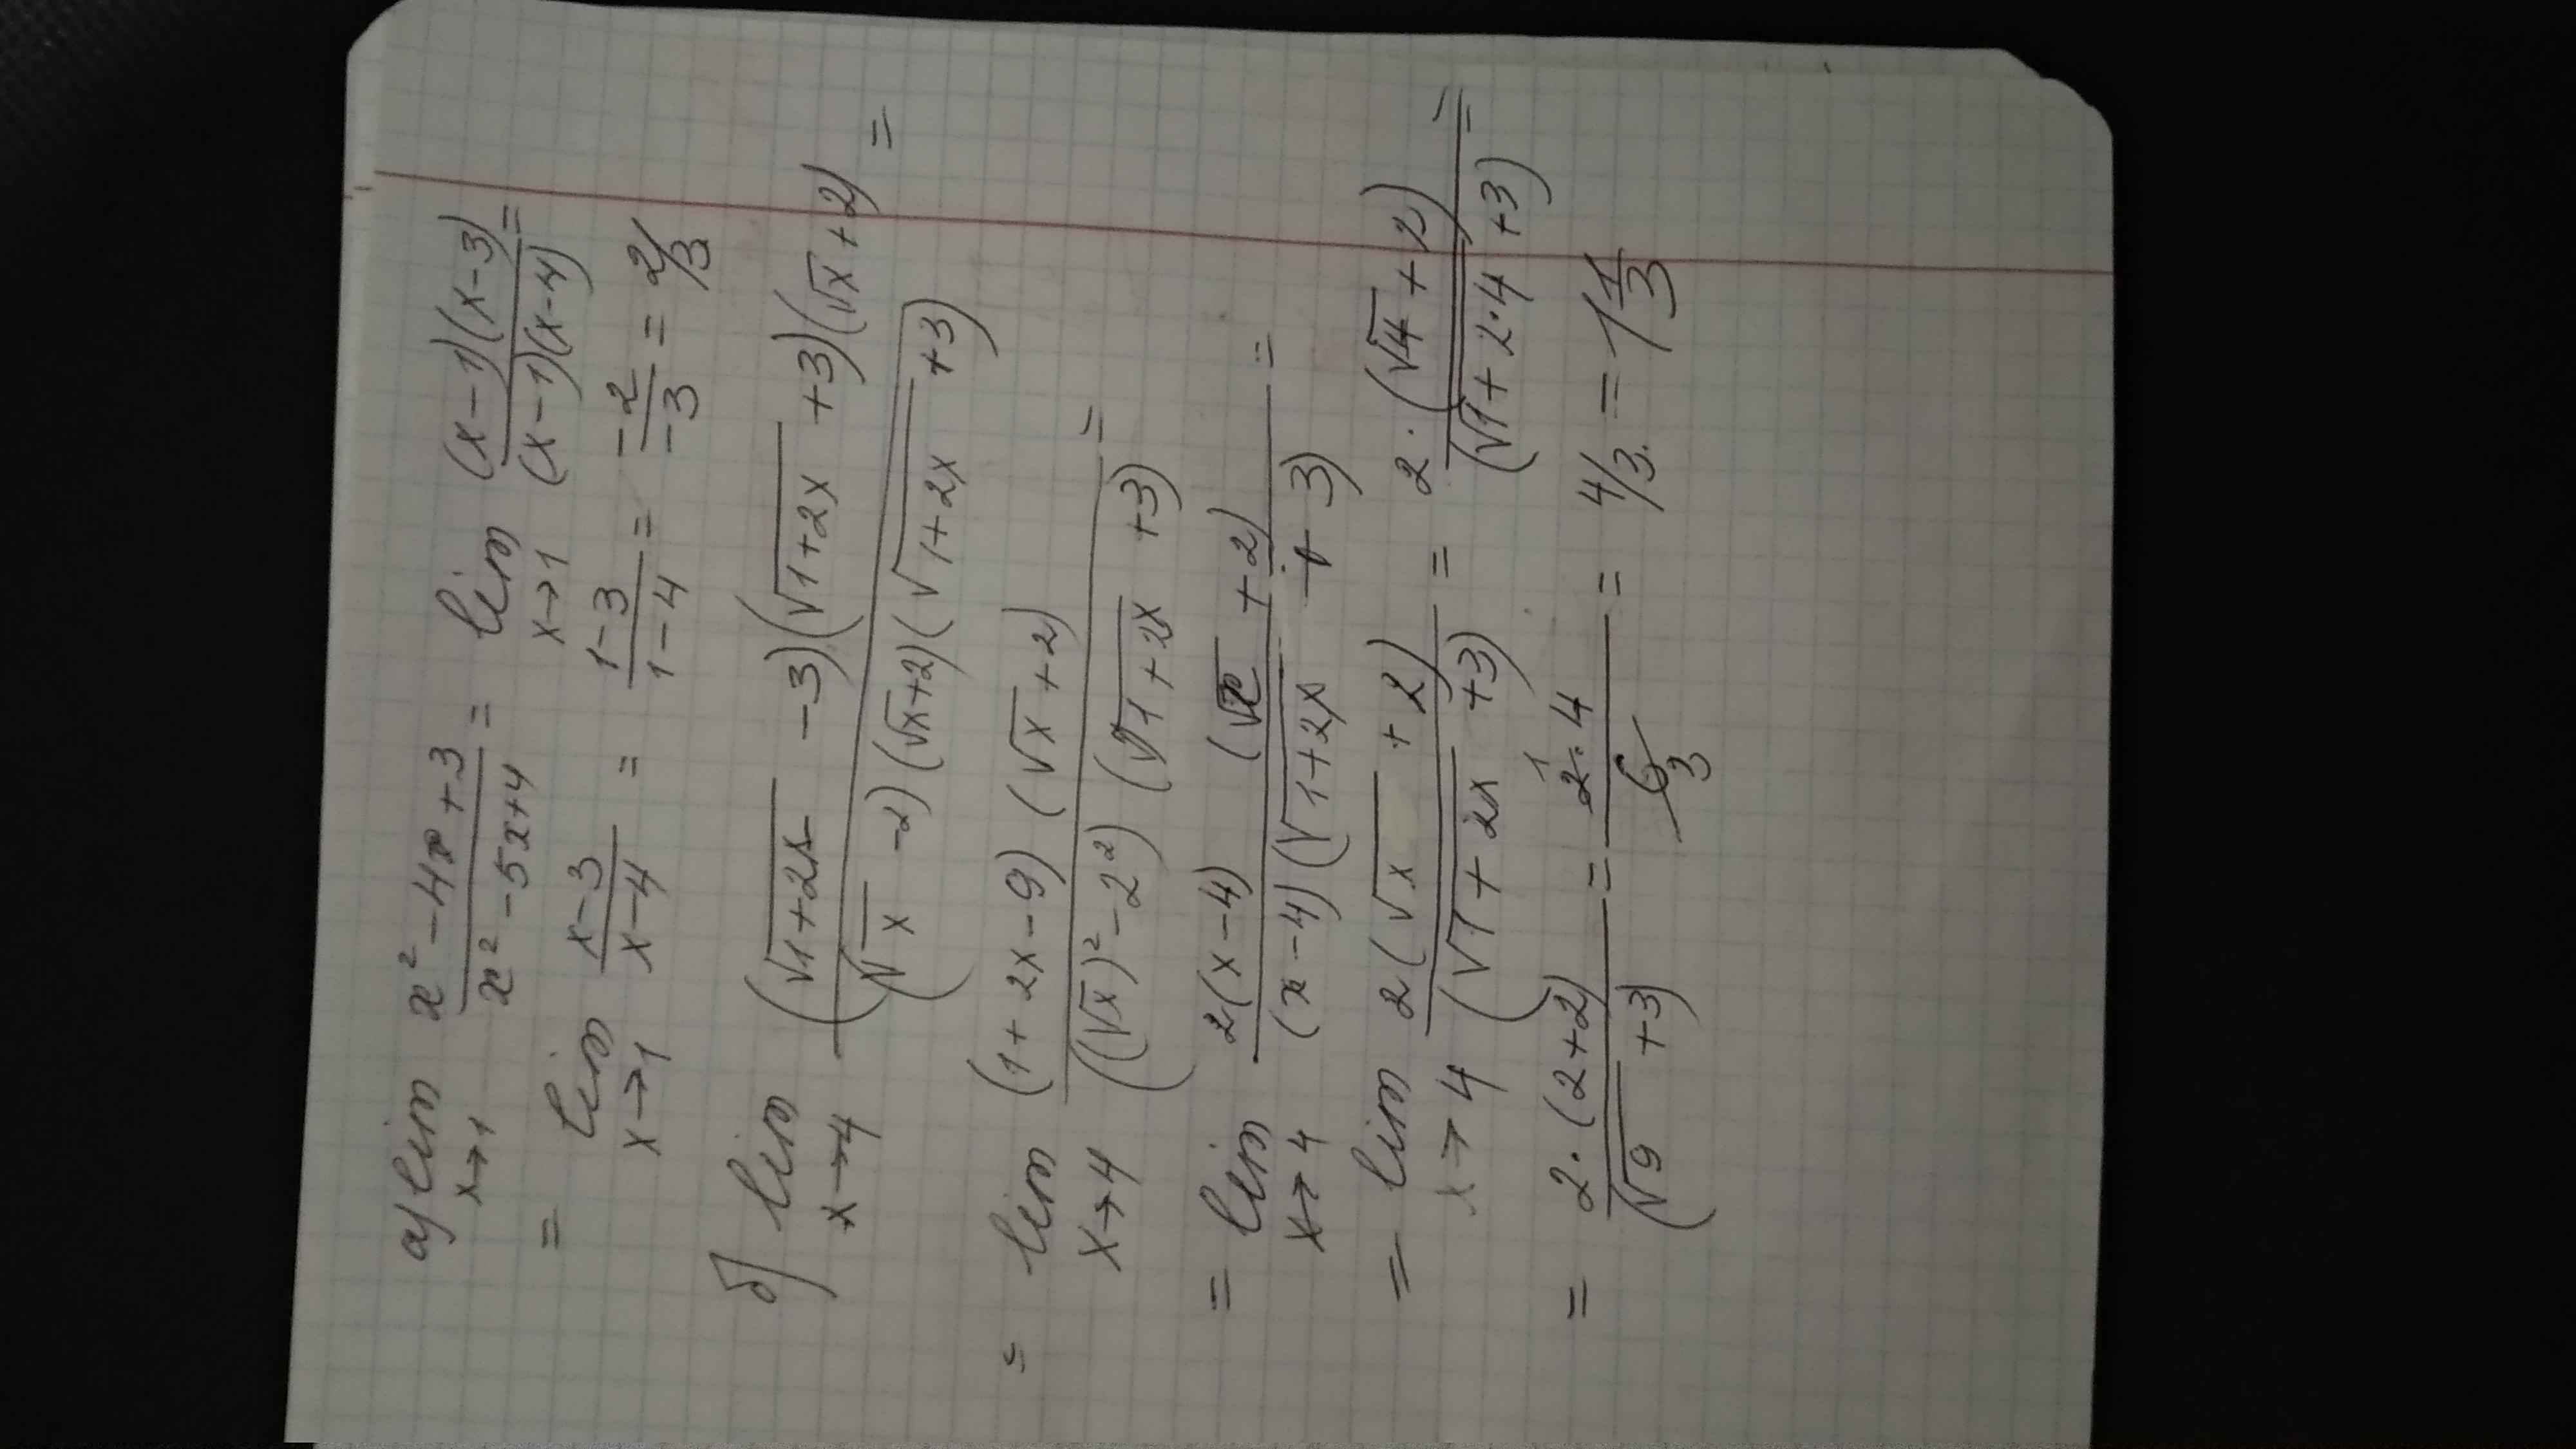 а) lim x→1 (x² - 4x + 3)/(x² - 5x + 4) = lim x→1 ((x - 1)(x - 3))/((x - 1)(x - 4)) =
= lim x→1 (x - 3)/(x - 4) = (1 - 3)/(1 - 4) = (-2)/(-3) = 2/3
б) lim x→4 ((√(1+2x) - 3)(√(1+2x) + 3)(√x + 2))/((√x - 2)(√x + 2)(√(1+2x) + 3)) =
= lim x→4 ((1 + 2x - 9)(√x + 2))/(((√x)² - 2²)(√(1+2x) + 3)) =
= lim x→4 (2(x - 4)(√x + 2))/((x - 4)(√(1+2x) + 3)) =
= lim x→4 (2(√x + 2))/((√(1+2x) + 3)) = (2·(√4 + 2))/((√(1+2·4) + 3)) =
= (2·(2+2))/((√9 + 3)) = (2·4)/6 = 4/3 = 1 1/3